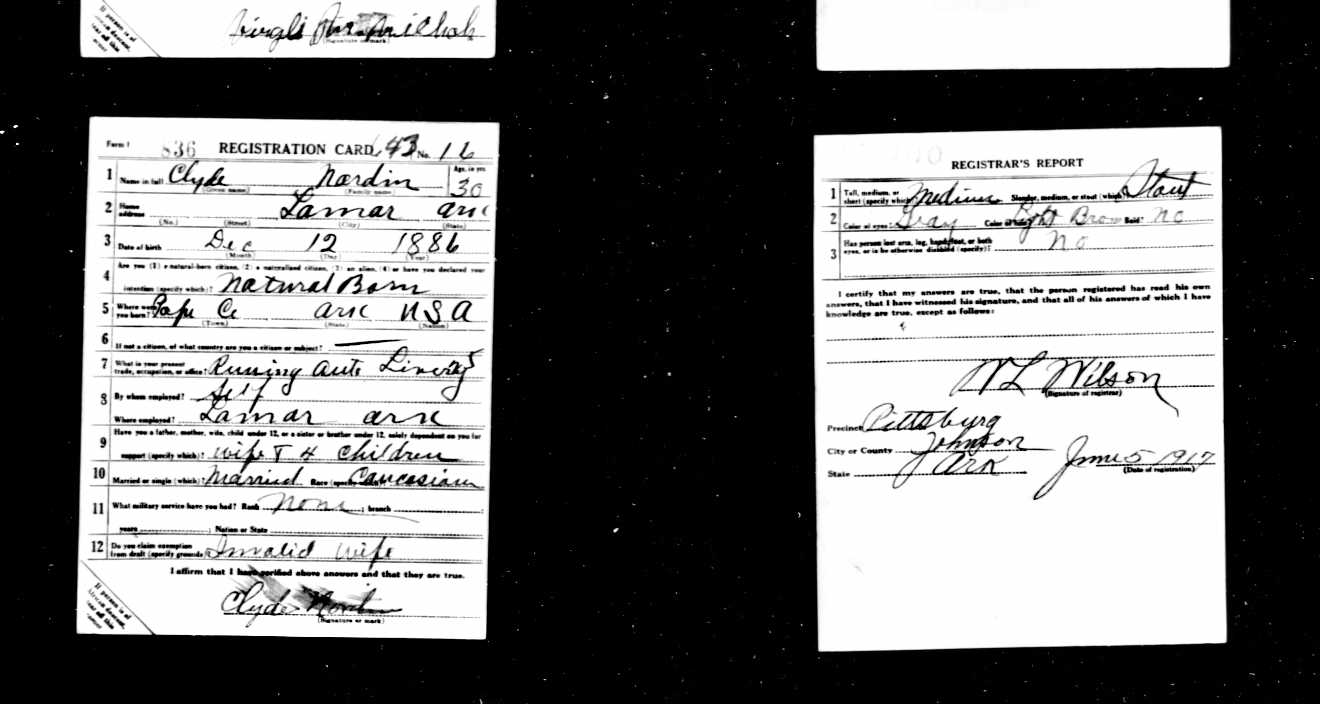 (Signature or mark)
If person is of
African descent,
tear off this
corner
Form 1 836 REGISTRATION CARD 43 No. 16
1 Name in full Clyde Nordin Age, in yrs. 30
(Given name) (Family name)
2 Home address Lamar Ark
(No.) (Street) (City) (State)
3 Date of birth Dec 12 1886
(Month) (Day) (Year)
4 Are you (1) a natural-born citizen, (2) a naturalized citizen, (3) an alien, (4) or have you declared your
intention (specify which)? Natural Born
5 Where were you born? Pope Co Ark USA
(Town) (State) (Nation)
6 If not a citizen, of what country are you a citizen or subject? —
7 What is your present trade, occupation, or office? Runing Auto Livery
8 By whom employed? Self
Where employed? Lamar Ark
9 Have you a father, mother, wife, child under 12, or a sister or brother under 12, solely dependent on you for
support (specify which)? Wife & 4 children
10 Married or single (which)? Married Race (specify which)? Caucasian
11 What military service have you had? Rank None ; branch
years ; Nation or State
12 Do you claim exemption from draft (specify grounds)? Invalid wife
I affirm that I have verified above answers and that they are true.
Clyde Nordin
(Signature or mark)
If person is of
African descent,
tear off this
corner
REGISTRAR'S REPORT
1 Tall, medium, or short (specify which)? Medium Slender, medium, or stout (which)? Stout
2 Color of eyes? Gray Color of hair? Light Brown Bald? No
3 Has person lost arm, leg, hand, foot, or both eyes, or is he otherwise disabled (specify)? No
I certify that my answers are true, that the person registered has read his own
answers, that I have witnessed his signature, and that all of his answers of which I have
knowledge are true, except as follows:
W L Wilson
(Signature of registrar)
Precinct Pittsburg
City or County Johnson
State Ark June 5 1917
(Date of registration)